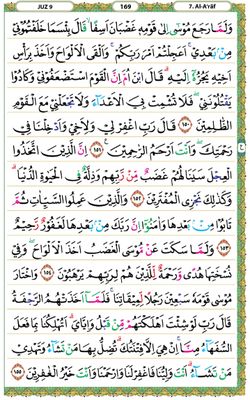 JUZ 9 169 7. Al-A'râf
وَلَمَّا رَجَعَ مُوْسٰٓى اِلٰى قَوْمِهٖ غَضْبَانَ اَسِفًا ۙ قَالَ بِئْسَمَا خَلَفْتُمُوْنِيْ
مِنْۢ بَعْدِيْ ۚ اَعَجِلْتُمْ اَمْرَ رَبِّكُمْ ۚ وَاَلْقَى الْاَلْوَاحَ وَاَخَذَ بِرَاْسِ
اَخِيْهِ يَجُرُّهٗٓ اِلَيْهِ ؕ قَالَ ابْنَ اُمَّ اِنَّ الْقَوْمَ اسْتَضْعَفُوْنِيْ وَكَادُوْا
يَقْتُلُوْنَنِيْ ۖ فَلَا تُشْمِتْ بِيَ الْاَعْدَآءَ وَلَا تَجْعَلْنِيْ مَعَ الْقَوْمِ
الظّٰلِمِيْنَ ١٥٠ قَالَ رَبِّ اغْفِرْ لِيْ وَلِاَخِيْ وَاَدْخِلْنَا فِيْ
رَحْمَتِكَ ۖ وَاَنْتَ اَرْحَمُ الرّٰحِمِيْنَ ١٥١ اِنَّ الَّذِيْنَ اتَّخَذُوا
الْعِجْلَ سَيَنَالُهُمْ غَضَبٌ مِّنْ رَّبِّهِمْ وَذِلَّةٌ فِي الْحَيٰوةِ الدُّنْيَا ؕ
وَكَذٰلِكَ نَجْزِي الْمُفْتَرِيْنَ ١٥٢ وَالَّذِيْنَ عَمِلُوا السَّيِّاٰتِ ثُمَّ
تَابُوْا مِنْۢ بَعْدِهَا وَاٰمَنُوْٓا ۡ اِنَّ رَبَّكَ مِنْۢ بَعْدِهَا لَغَفُوْرٌ رَّحِيْمٌ
١٥٣ وَلَمَّا سَكَتَ عَنْ مُّوْسَى الْغَضَبُ اَخَذَ الْاَلْوَاحَ ۖ وَفِيْ
نُسْخَتِهَا هُدًى وَّرَحْمَةٌ لِّلَّذِيْنَ هُمْ لِرَبِّهِمْ يَرْهَبُوْنَ ١٥٤ وَاخْتَارَ
مُوْسٰى قَوْمَهٗ سَبْعِيْنَ رَجُلًا لِّمِيْقَاتِنَا ۚ فَلَمَّآ اَخَذَتْهُمُ الرَّجْفَةُ
قَالَ رَبِّ لَوْ شِئْتَ اَهْلَكْتَهُمْ مِّنْ قَبْلُ وَاِيَّايَ ؕ اَتُهْلِكُنَا بِمَا فَعَلَ
السُّفَهَآءُ مِنَّا ۚ اِنْ هِيَ اِلَّا فِتْنَتُكَ ؕ تُضِلُّ بِهَا مَنْ تَشَآءُ وَتَهْدِيْ
مَنْ تَشَآءُ ؕ اَنْتَ وَلِيُّنَا فَاغْفِرْ لَنَا وَارْحَمْنَا وَاَنْتَ خَيْرُ الْغٰفِرِيْنَ ١٥٥